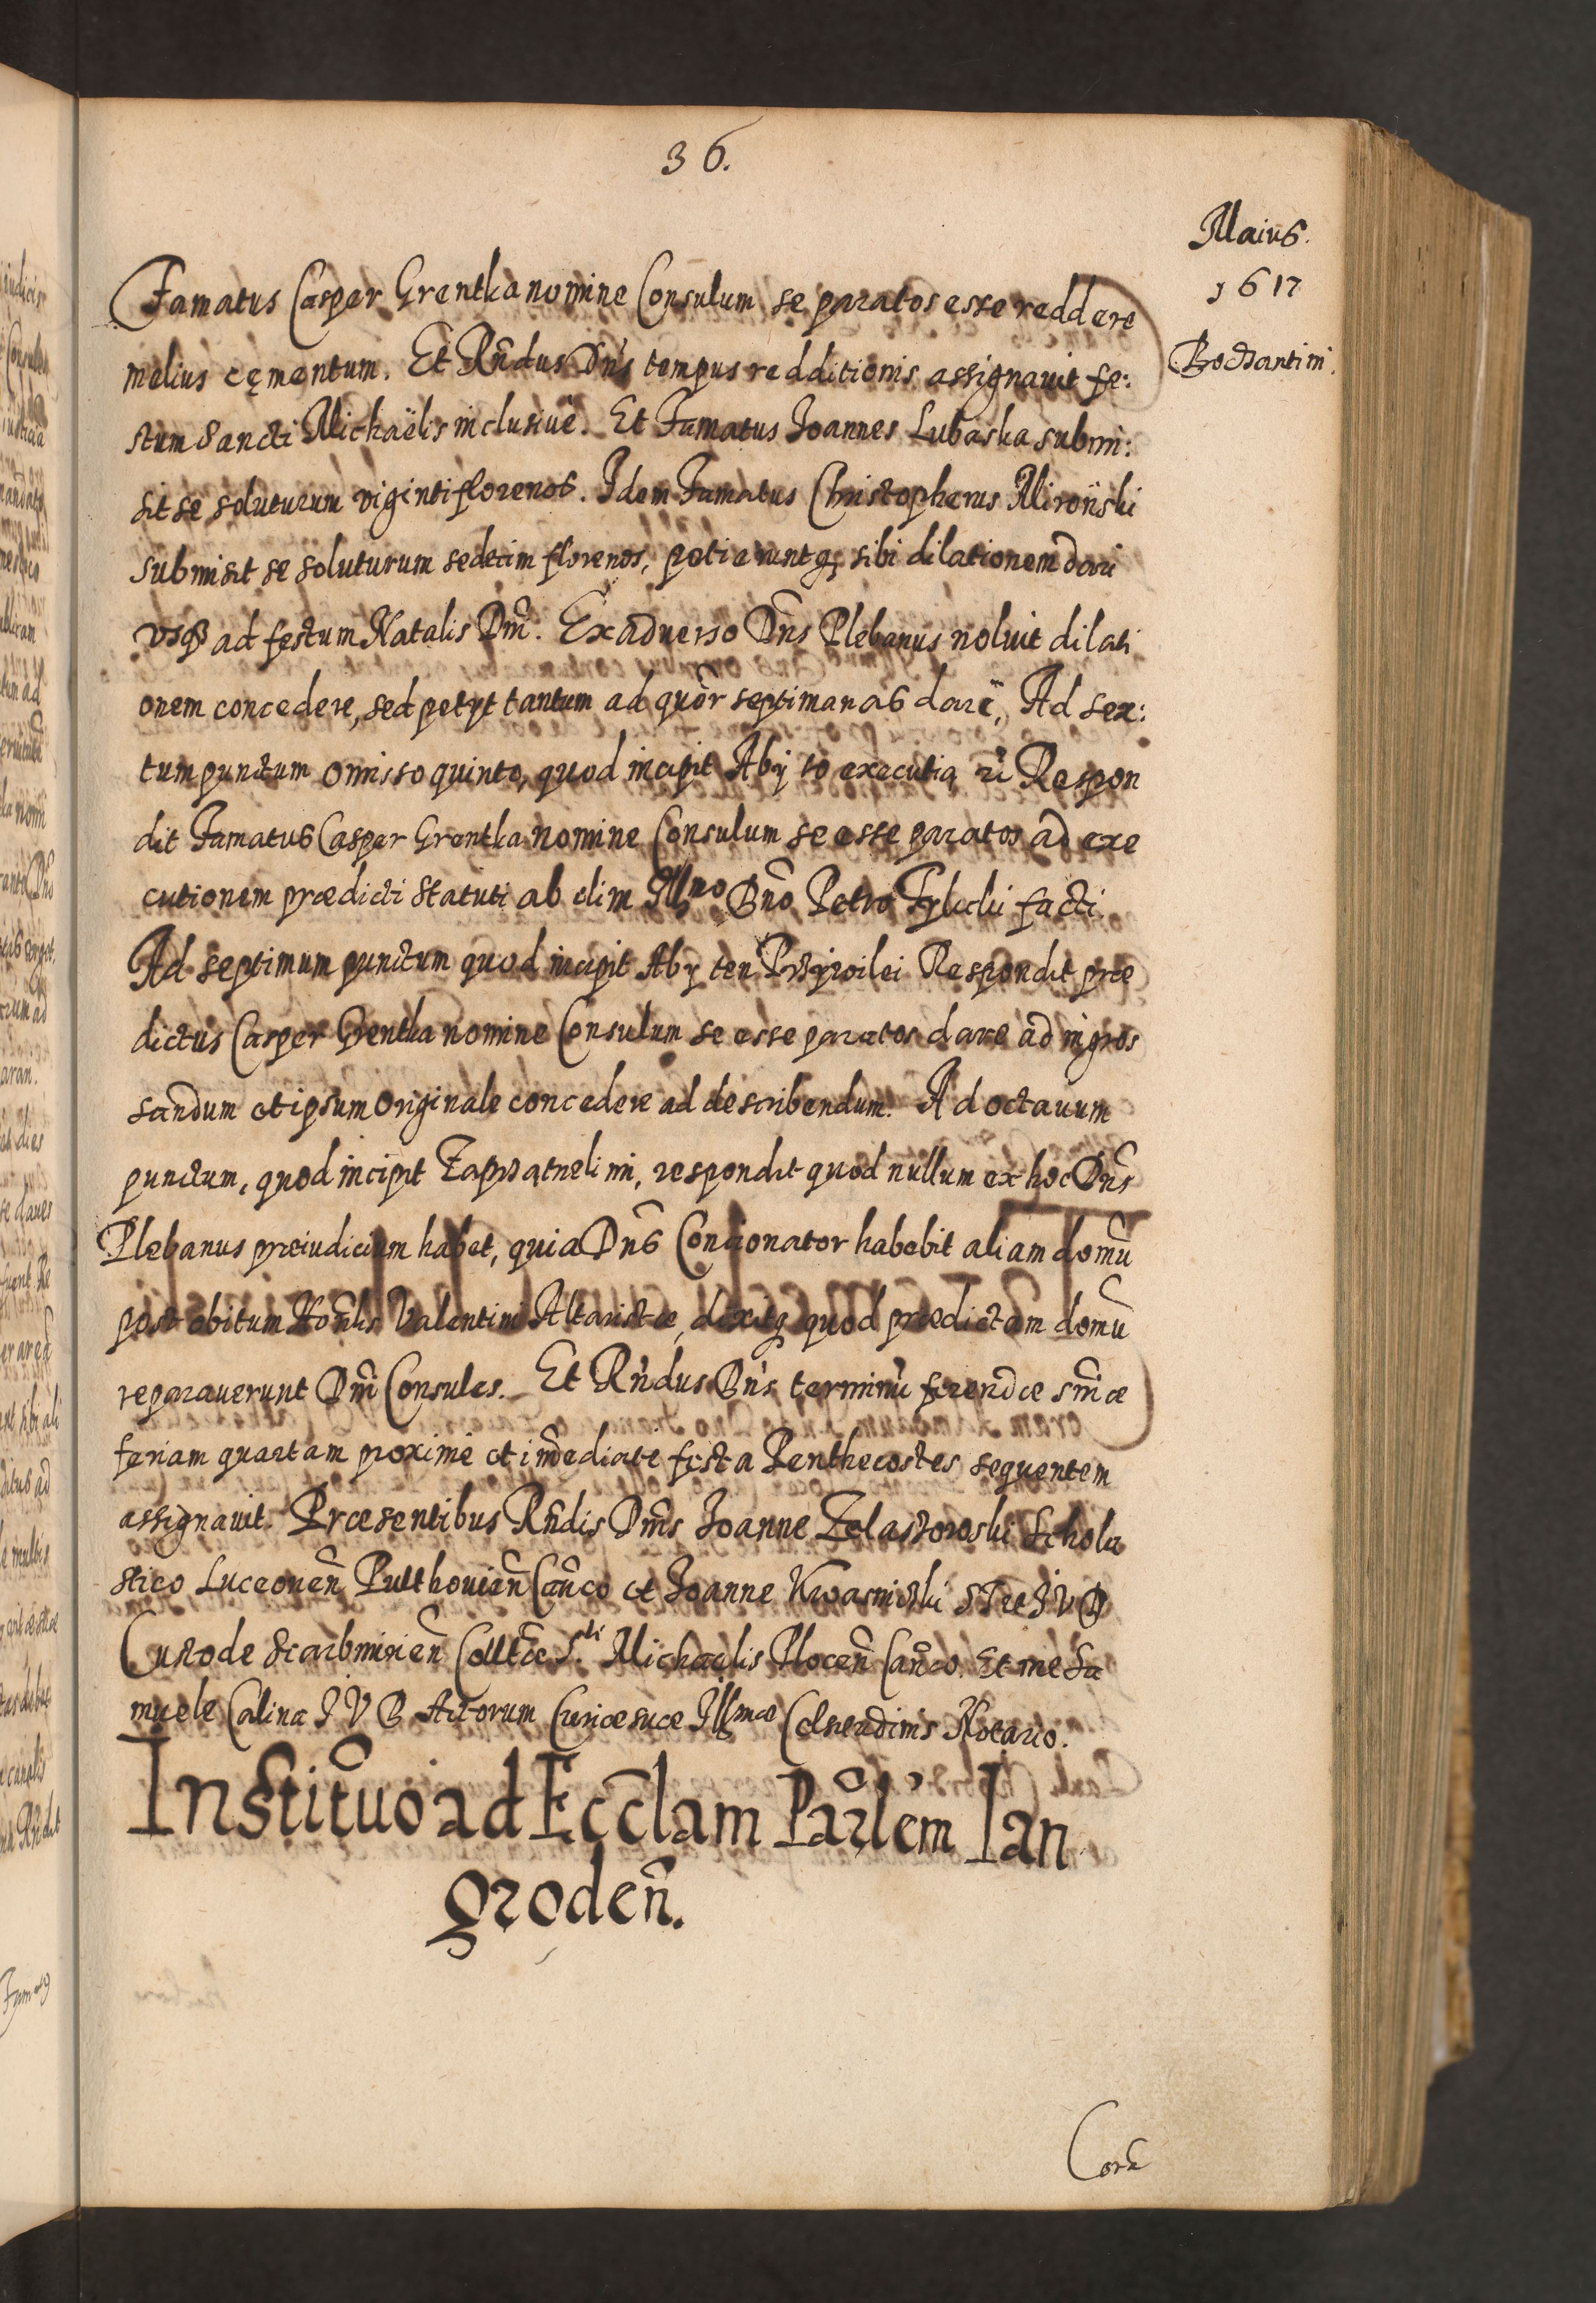 36.
Maius.
1617
Bodzantini.
Famatus Casper Grentka nomine Consulum se paratos esse reddere
melius cęmentum. Et Rn̄dus Dn̄s tempus redditionis assignauit fe:
stum Sancti Michaëlis inclusiuè. Et Famatus Joannes Lubaska submi:
sit se soluturum viginti florenos. Idem Famatus Christopherus Mironski
submisit se soluturum sedecim florenos, petieruntq; sibi dilationem dari
vsq; ad festum Natalis Dn̄i. Ex aduerso Dn̄s Plebanus noluit dilati
onem concedere, sed petyt tantum ad quōr septimanas dari, Ad sex:
tum punctum omisso quinto, quod incipit Aby to executią Respon
dit Famatus Casper Grentka nomine Consulum se esse paratos ad exe
cutionem prædicti Statuti ab olim Illmo Dn̄o Petro Tylicki facti.
Ad septimum punctum quod incipit Aby ten Przywilei Respondit præ
dictus Casper Grentka nomine Consulum se esse paratos dare ad ingros
sandum et ipsum Originale concedere ad describendum. Ad octauum
punctum, quod incipit respondit quod nullum ex hoc Dn̄s
Plebanus præiudicium habet, quia Dn̄s Concionator habebit aliam domū
post obitum Hon̄lis Valentini Altaristæ, dixitq; quod prædictam domū
reparauerunt Dn̄i Consules. Et Rn̄dus Dn̄s terminū ferendæ sn̄iæ
feriam quartam proximè et im̄ediatè festa Penthecostes sequentem
assignauit. Præsentibus Rn̄dis Dn̄is Joanne Zelaskowski Schola
stico Luceoneń Pulthouień Can̄co et Joanne Kwasnicki S T et J V D
Custode Scarbimirień Colltæ S.ti Michaelis Ploceń Can̄co. Et me Sa
muele Calina J V D Actorum Curiæ suæ Illmæ Celsitudinis Notario.
Institūo ad Ecc̄lam Par̄lem Ian
grodeñ.
Corā